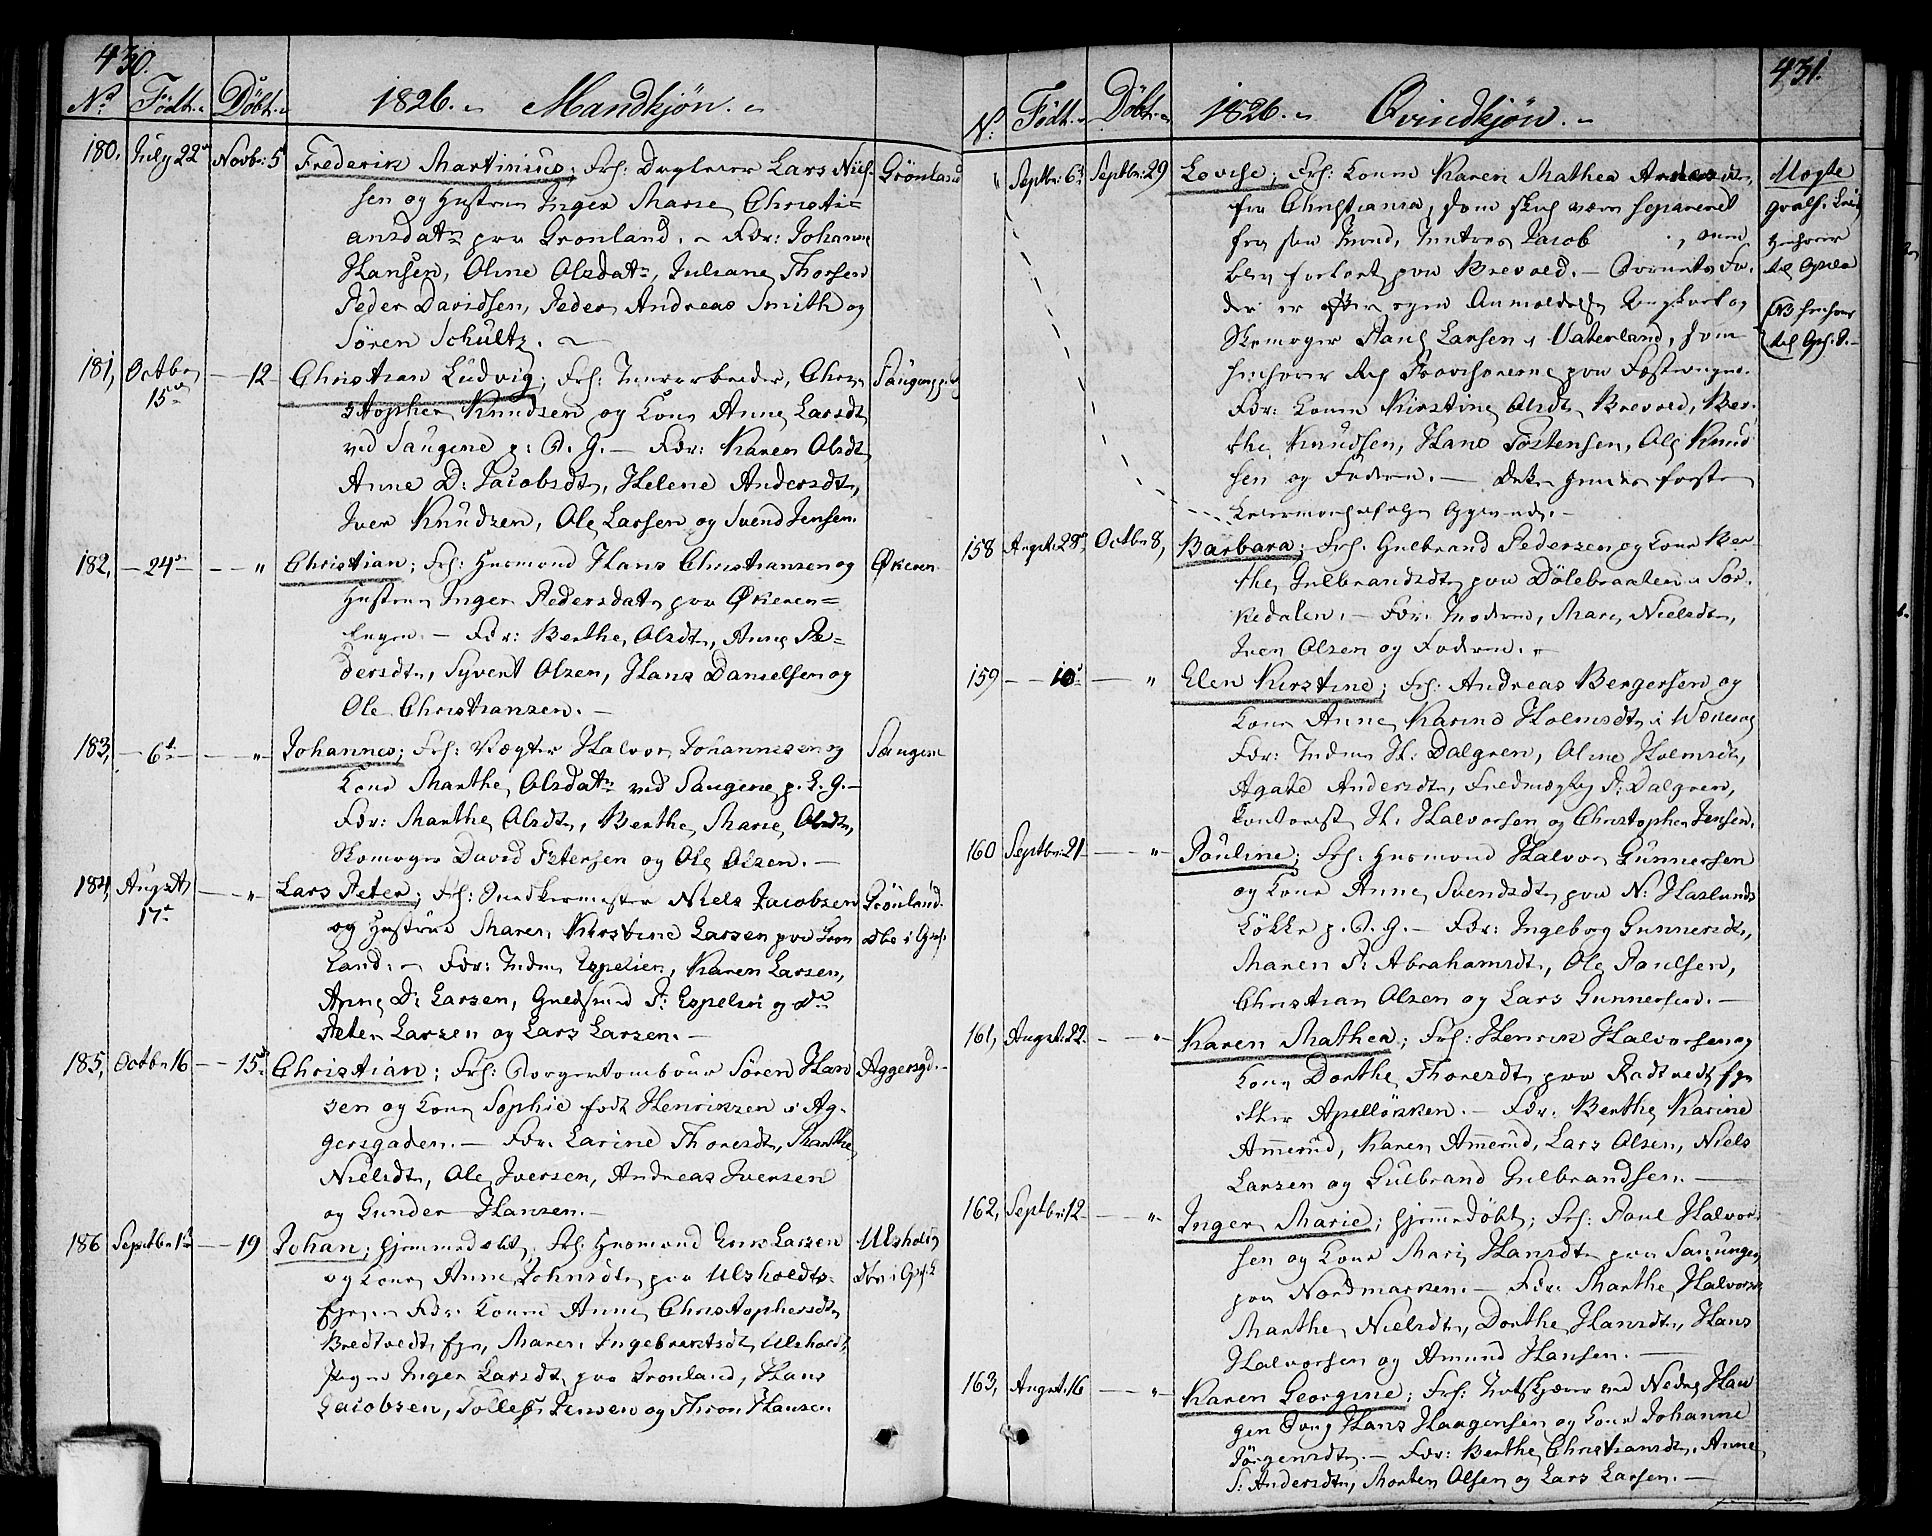 430.
No Födt. Döbt. 1826. Mandkjön.
180. July 22de Novbr: 5 Frederik Martinius; Frs: Dagleier Lars Niel- Grönland
sen og Hustrue Inger Marie Christi=
ansdatr paa Grönland. Fdr: Johanne
Hansen, Oline Olsdatr, Juliane Thorsen
Peder Davidsen, Peder Andreas Smith og
Sören Schultz.
181, Octbr 15de 12 Christian Ludvig; Frs: Chri-
stopher Knudsen og Kone Anne Larsdtr
ved Saugene p: E. G. — Fdr: Karen Olsdtr
Anne D: Jacobsdtr, Helene Andersdtr,
Iver Knudzen, Ole Larsen og Svend Jensen.
182, 24de " Christian; Frs: Husmand Hans Christiansen og Økeren
Hustrue Inger Pedersdatr paa Økeren=
Engen. — Fdr: Berthe Olsdtr, Anne Pe=
dersdtr, Syvert Olzen, Hans Danielsen og
Ole Christianzen. —
183, 6te " Johannes; Frs: Vægter Halvor Johannesen og Saugene
Kone Marthe Olsdatr ved Saugene p. E. G. —
Fdr: Marthe Olsdtr, Berthe Marie Olsdtr,
Skomager David Petersen og Ole Olzen. —
184, Augst 17de " Lars Peter; Frs: Snedkermester Niels Jacobsen Grönland
og Hustrue Maren Kirstine Larsen paa Grön
land. — Fdr: Espelien, Karen Larsen,
Anne D: Larsen, P: Espelien og
Peter Larsen og Lars Larsen. —
185, Octbr 16 15de Christian; Frs: Borgertambour Sören Han Aggersgd.
sen og Kone Sophie født Henriksen i Ag-
gersgaden. — Fdr. Larine Thoresdtr, Marthe
Nielsdtr, Ole Iversen, Andreas Iversen
og Gunder Hansen. —
186 Septbr 1ste 19 Johan; hjemmedøbt; Frs: Husmand Larsen Ulsholdt
og Kone Anne Johnsdtr paa Ulsholdts-
Fdr: Kone Anne Christophersdtr
Bredtvedt Maren Ingebretsdtr Ulsholdt,
Pigen Inger Larsdtr paa Grønland, Hans
Jacobsen, Tollef Jensen og Thron Hansen
431.
N: Födt. Döbt. 1826. Qvindkjön.
" Septbr: 6te Septbr: 29 Lovise; Frs: Konen Karen Mathea Andersdtr,
fra Christiania, som skal være separeret
fra sin Mand, Jacob , som
blev paa Brevold. — Barnets Fa-
der er efter egen Anmeldelse Ungkarl og
Skomager Larsen i Vaterland, som
Fdr: Konen Kirstine Olsdtr Brevold, Ber-
the Knudsen, Hans Tostensen, Ole Knud
sen og Faderen. — første
Leiermaal
158 Augst: 28de, Octbr: 8, Barbara; Frs. Gulbrand Pedersen og Kone Ber-
the Gulbrandsdtr paa Dölebraaten i Sör-
kedalen. — Fdr. Moderen, Mari Nielsdtr,
Iver Olsen og Faderen.
159 10de " Elen Kirstine; Frs: Andreas Bergersen og
Kone Anne Karine Holmsdtr i
Fdr: H: Dalgren, Oline Holmsdtr,
Agate Andersdtr, P: Dalgren,
Contorist H. Halvorsen og Christopher Jensen.
160 Septbr: 21 " Pauline; Frs: Husmand Halvor Gunnersen
og Kone Anne Svendsdtr paa N: Haslunds
Lökke p. E. G. — Fdr: Ingeborg Gunnersdtr,
Maren P: Abrahamsdtr, Ole Paulsen,
Christian Olzen og Lars Gunnersen. —
161, Augst: 22. " Karen Mathea; Frs: Henrik Halvorsen og
Kone Dorthe Thoresdtr paa Rödtvedt
Apellökken. — Fdr: Berthe Karine
Amerud, Karen Amerud, Lars Olsen, Niels
Larsen og Gulbrand Gulbrandsen. —
162, Septbr: 12 " Inger Marie; hjemmedöbt; Frs: Poul Halvor-
sen og Kone Mari Hansdtr paa Sandungen
paa Nordmarken. — Fdr: Marthe Halvorsdtr
Marthe Nielsdtr, Dorthe Hansdtr, Hans
Halvorsen og Amund Hansen. —
163, Augst: 16 " Karen Georgine; Frs: ved Nedre Hau
gen Hans Haagensen og Kone Johanne
Jörgensdtr. — Fdr: Berthe Christiansdtr, Anne
S: Andersdtr, Morten Olsen og Lars Larsen. —